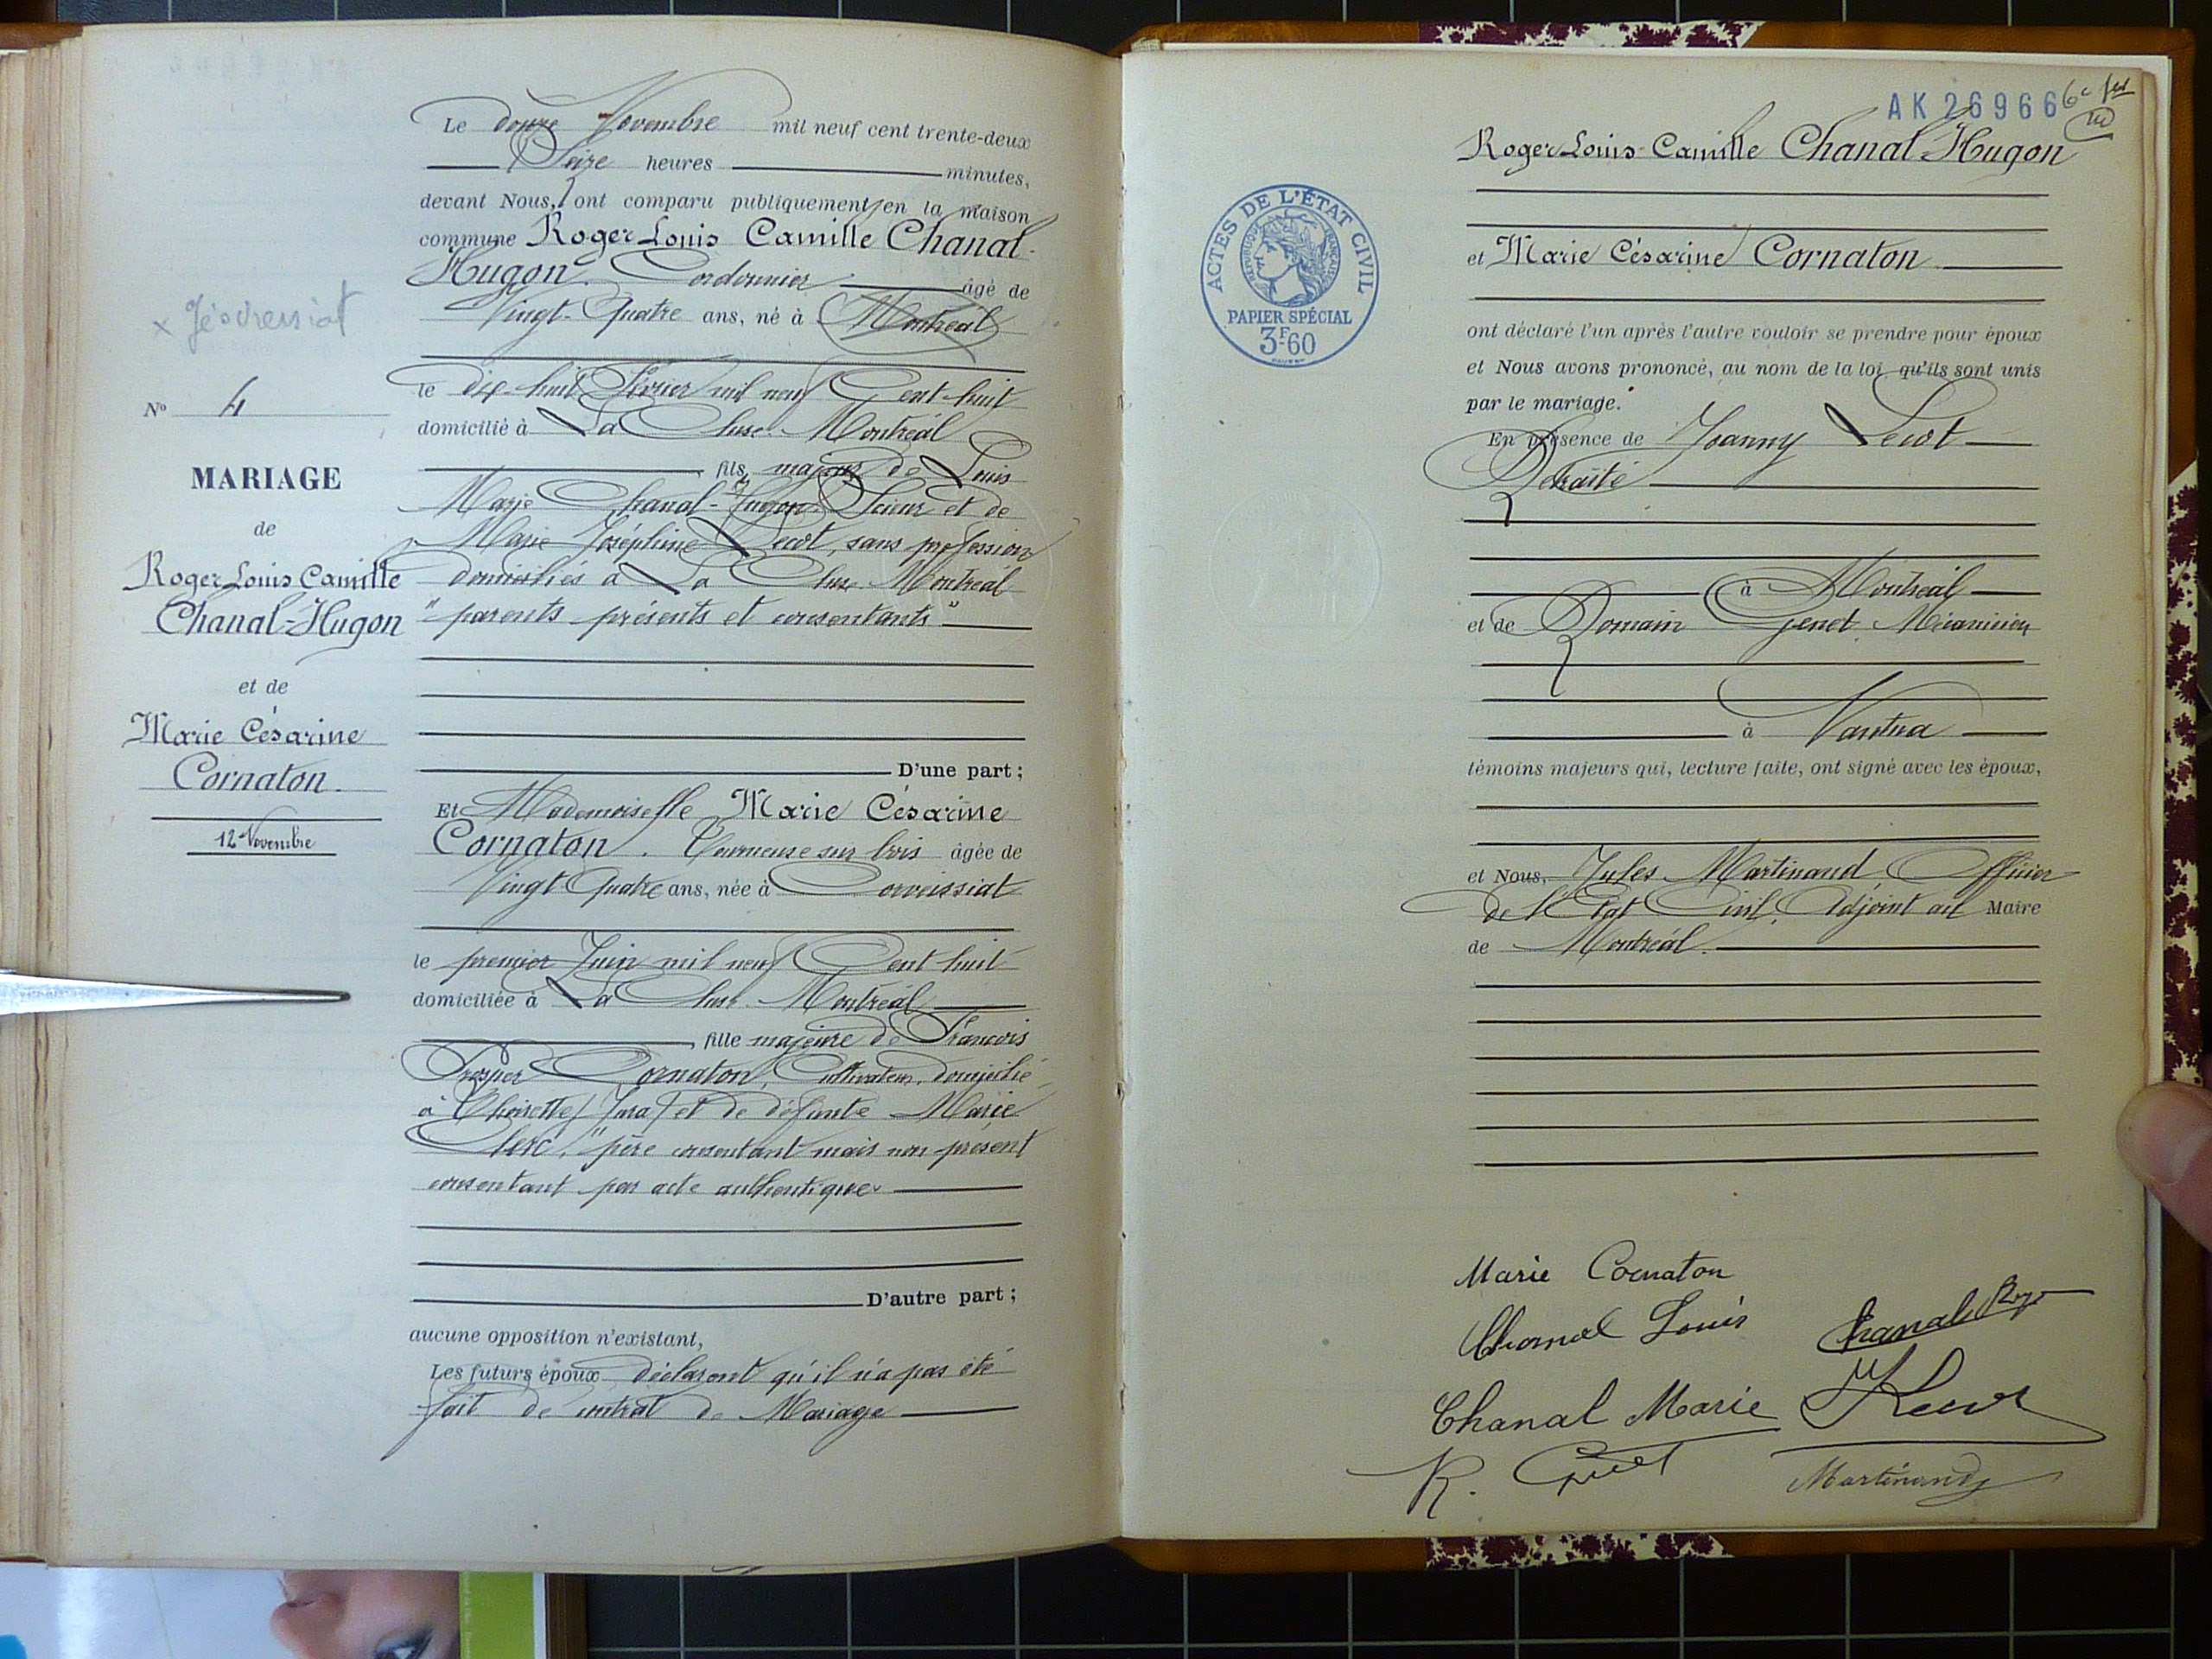 Le douze Novembre mil neuf cent trente-deux
Seize heures minutes,
devant Nous, ont comparu publiquement en la maison
commune Roger Louis Camille Chanal-
Hugon. Cordonnier âgé de
Vingt-Quatre ans, né à Montréal
le dix-huit Février mil neuf Cent huit
domicilié à La Cluse-Montréal
fils majeur de Louis
Marie Chanal-Hugon, Scieur et de
Marie Joséphine Lecot, sans profession
domiciliés à La Cluse-Montréal
"parents présents et consentants"
D'une part;
Et Mademoiselle Marie Césarine
Cornaton. Tourneuse sur bois âgée de
Vingt-Quatre ans, née à Corveissiat
le premier Juin mil neuf Cent huit
domiciliée à La Cluse-Montréal
, fille majeure de François
Prosper Cornaton, Cultivateur, domicilié
à Thoirette (Jura) et de défunte Marie
Clerc. "père consentant mais non présent
consentant par acte authentique"
D'autre part;
aucune opposition n'existant,
Les futurs époux déclarent qu'il n'a pas été
fait de contrat de Mariage
No 4
MARIAGE
de
Roger Louis Camille
Chanal-Hugon
et de
Marie Césarine
Cornaton.
12 Novembre
AK 26966
Roger Louis-Camille Chanal-Hugon
et Marie Césarine Cornaton
ont déclaré l'un après l'autre vouloir se prendre pour époux
et Nous avons prononcé, au nom de la loi qu'ils sont unis
par le mariage.
En présence de Joanny Lecot
Retraité
à Montréal
et de Romain Genet. Mécanicien
à Nantua
témoins majeurs qui, lecture faite, ont signé avec les époux,
et Nous, Jules Martinand, Officier
de l'Etat Civil, Adjoint au Maire
de Montréal.
ACTES DE L'ÉTAT CIVIL
RÉPUBLIQUE FRANÇAISE
PAPIER SPÉCIAL
3F60
Marie Cornaton
Chanal Louis
Chanal Roger
Chanal Marie
JLecot
R. Genet
Martinand